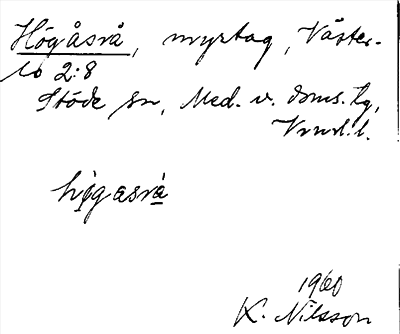 Högåsrå, myrtag, Väster-
lo 2:8
Stöde sn, Med. v. doms. tg,
Vrnrl. l.
hǫgasrà
1960
K. Nilsson